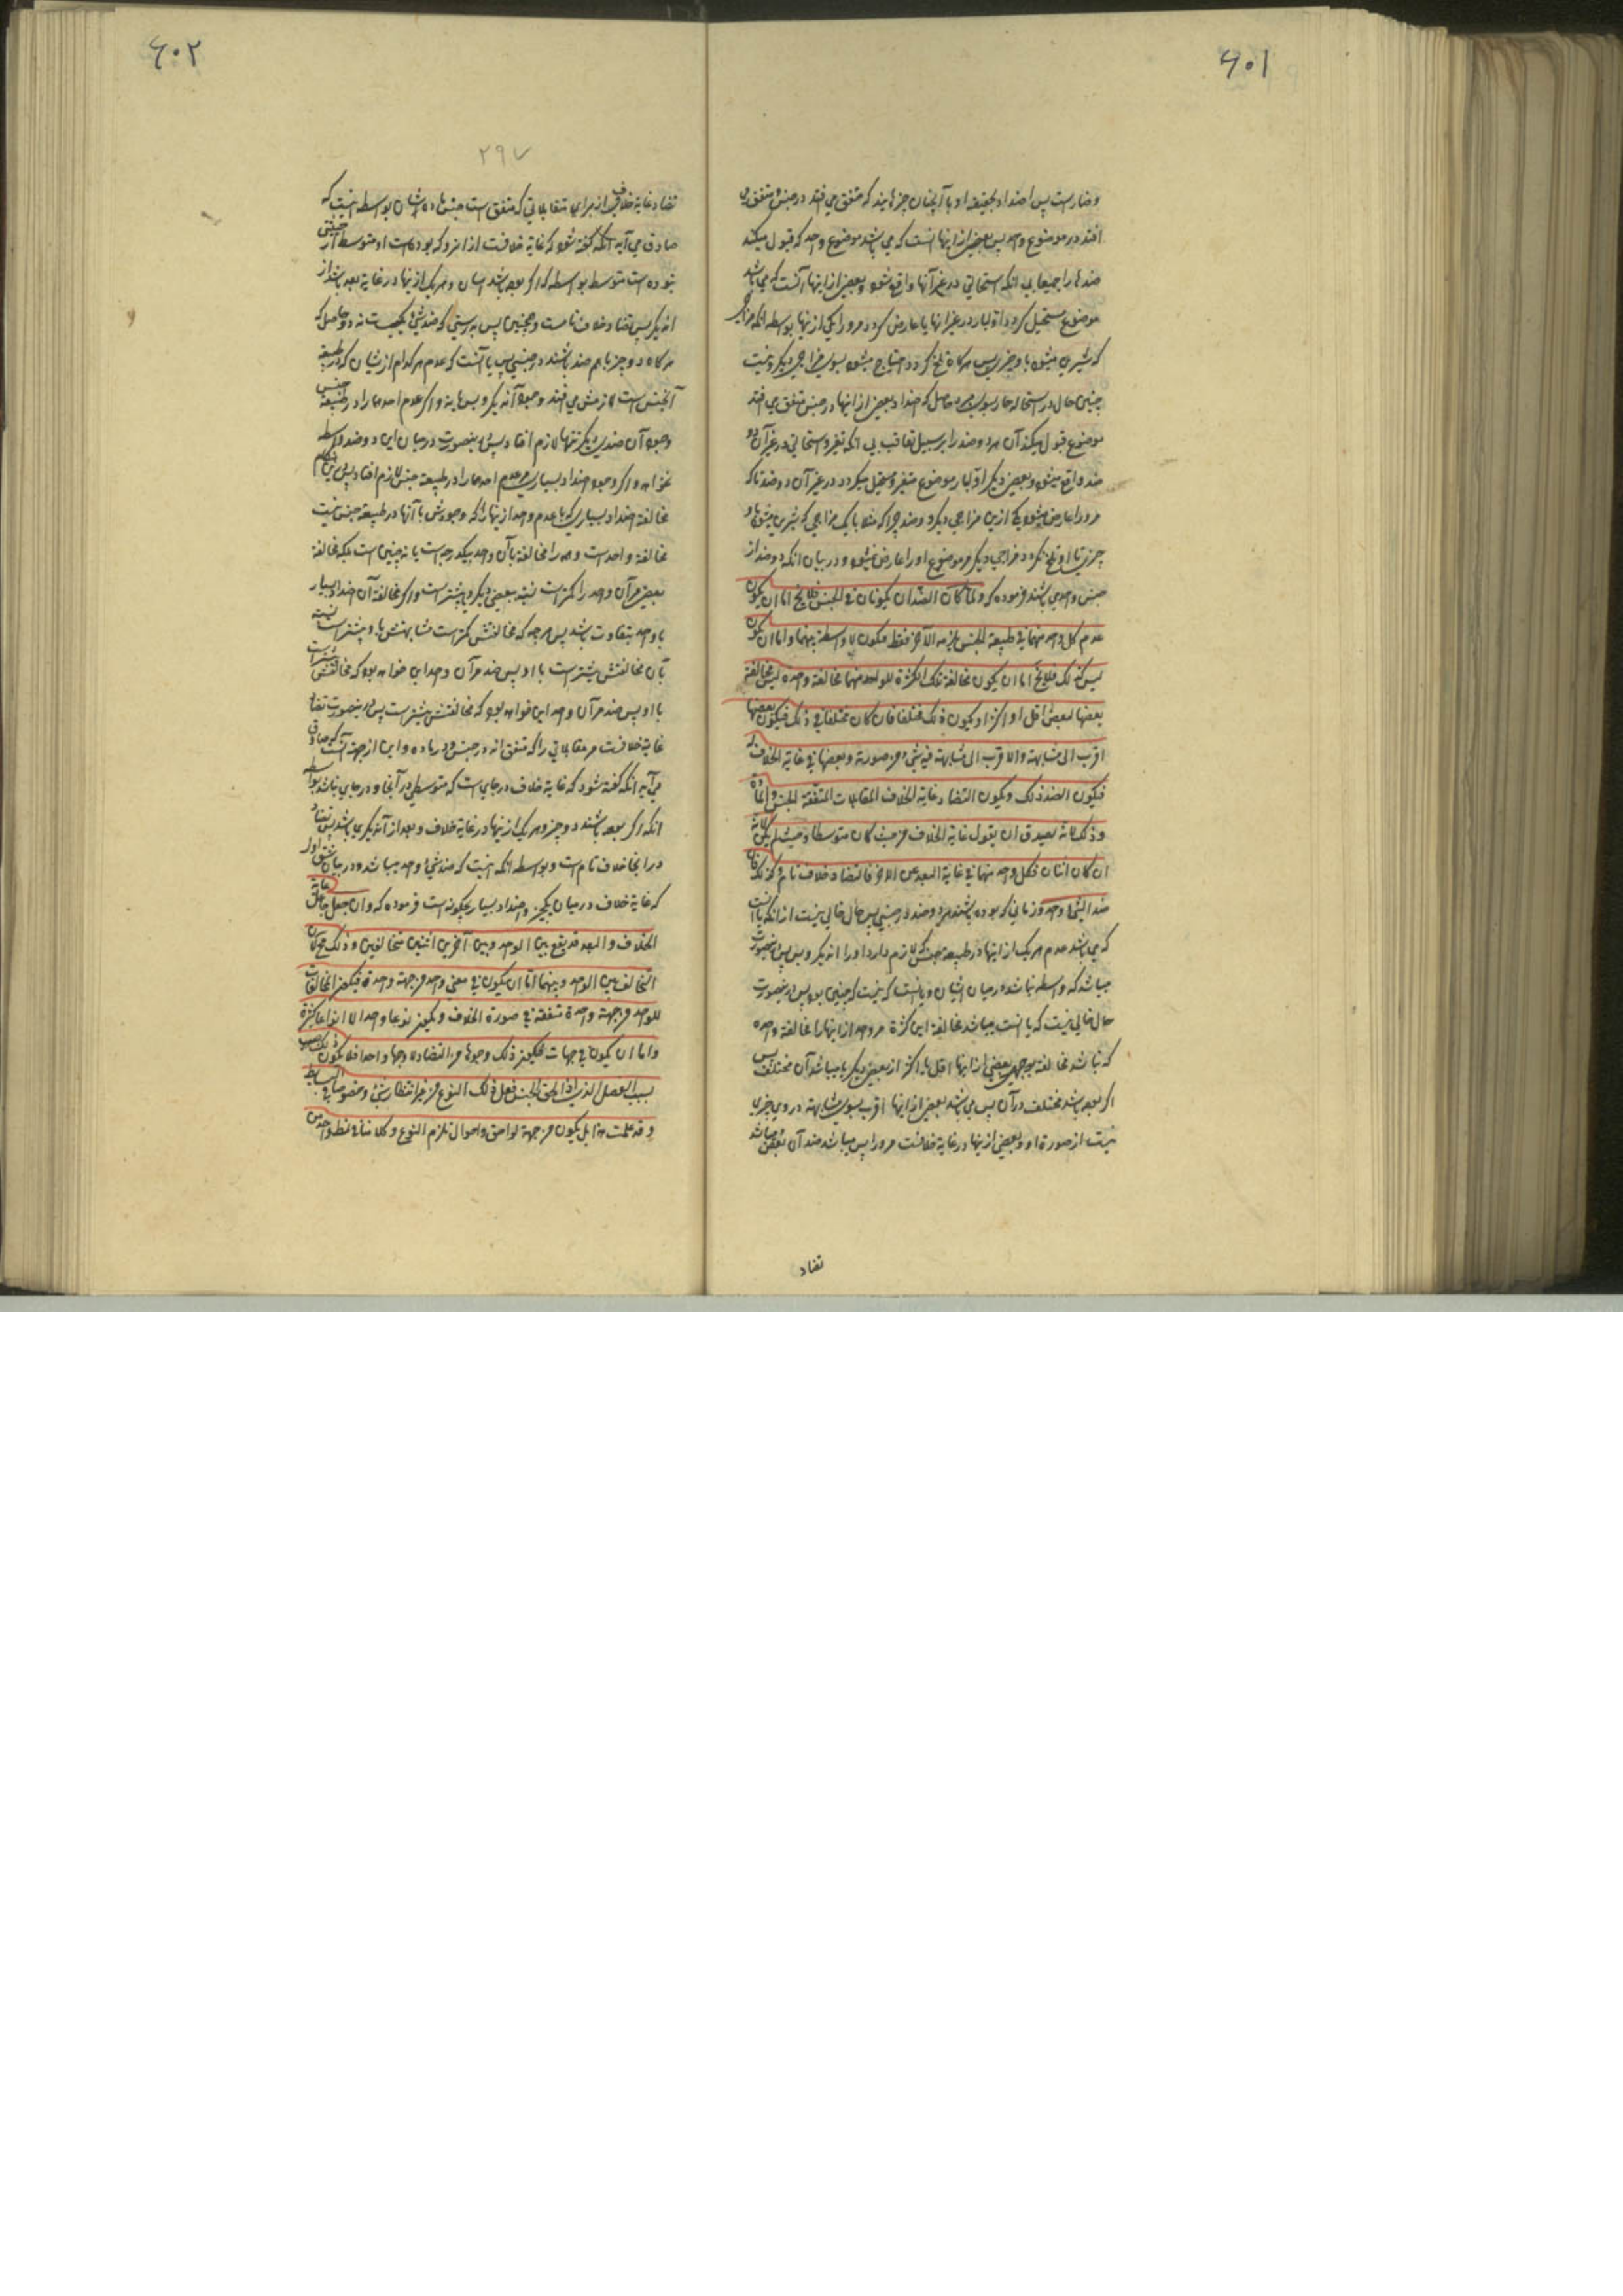 ۶۰۱
وضار است پس اضداد بحقیقه او با آنچنان چیزهایند که متفق می افتد در جنس و متفق می
افتد در موضوع واحد پس بعضی از اینها آنست که می باشد موضوع واحد که قبول میکند
ضدها را جمیعا بی آنکه استحالتی در غیر آنها واقع شود و بعضی از اینها آنست که می باشد
موضوع مستحیل گردد اولا در غیر اینها یا عارض گردد مر او را یکی از اینها بواسطه آنکه مزاجی
که شیرین میشود باو چیزی پس هرگاه تلخ گردد احتیاج میشود بسوی مزاجی دیگر و نیست
چنین حال در استحاله حار ببارد حاصل که اضداد بعضی از اینها در جنس متفق می افتد
موضوع قبول میکند آن هر دو ضد را بر سبیل تعاقب بی آنکه تغیر و استحالتی در غیر آن دو
ضد واقع میشود و بعضی دیگر اولا موضوع متغیر و مستحیل میگردد در غیر آن دو ضد تا که
مر او را عارض میشود یکی ازین مزاجی دیگر دو ضد چرا که مثلا با یک مزاجی که شیرین میشود او
چیزی تا او تلخ نگردد مزاجی دیگر مر موضوع او را عارض نمیشود و در بیان آنکه دو ضد از
جنس واحدی باشند فرموده که ولما کان الضدان یکونان فی الجنس فلا یخ اما ان یکون
عدم کل واحد منهما فی طبیعة الجنس یلزمه الآخر فقط فیکون لا واسطة بینهما واما ان یکون
لیس کذلک فلا یخ اما ان یکون مخالفة تلک الکثرة للواحد منهما مخالفة واحدة لیس مخالفة
بعضها لبعض اقل او اکثر او یکون ذلک مختلفا فان کان مختلفا فی ذلک فیکون بعضها
اقرب الی مشابهته والاقرب الی مشابهته فیه شیء من صورته وبعضها فی غایة الخلاف له
فیکون الضد ذلک ویکون التضاد غایة الخلاف للمقابلات المتفقة الجنس والمادة
وذلک لانه یصدق ان یقول غایة الخلاف من حیث کان متوسطا وحیث لم یکن لانه
ان کان اثنان فکل واحد منهما فی غایة البعد من الآخر فالتضاد خلاف تام وکذلک فان
ضد الشیء واحد وزمانی که بوده باشند هر دو ضد در جنس پس حال خالی نیست از آنکه یا آنست
که می باشد عدم هر یک از اینها در طبیعة جنس که لازم دارد او را آن دیگر و بس پس در اینصورت
میباشد که واسطه نباشد درمیان ایشان و یا آنست که نیست که چنین بود پس در اینصورت
حال خالی نیست که یا آنست میباشد مخالفة این کثرة مر واحد از اینها را مخالفة واحده
که نباشد مخالفة بوجهی بعضی از اینها اقل یا اکثر از بعضی دیگر یا میباشد آن مختلف پس
اگر بوده باشد مختلف در آن پس می باشد بعضی از اینها اقرب بسوی مشابهته در وی چیزی
نیست از صورة او و بعضی از اینها در غایة خلافت مر او را پس میباشد ضد آن بعض میباشد
تضاد
۶۰۲
۲۹۷
تضاد غایة خلاف از برای متقابلاتی که متفق است جنس ماده ایشان بواسطه اینست که
صادق می آید آنکه گفته شود که غایة خلافت از آنرو که بوده است او متوسط از حیثیتی
نبوده است متوسط بواسطه که اگر بوده باشد ایشان و هر یک از اینها در غایة بعد باشد از
آن دیگر پس تضاد خلاف تامست و همچنین پس بدرستی که ضد شیء یکیست نه دو حاصل که
هرگاه دو چیز با هم ضد باشند در جنسی پس یا آنست که عدم هر کدام ازیشان که در طبیعة
آنجنس است لازمش می افتد وجود آن دیگر و بس یا نه و اگر عدم احدهما را در طبیعة جنس
وجود آن ضد دیگر تنها لازم افتاد پس در اینصورت درمیان این دو ضد واسطه
نخواهد و اگر وجود اضداد بسیاری عدم احدهما را در طبیعة جنس لازم افتاد پس این هنگام
مخالفة اضداد بسیاری که با عدم واحد از اینها را که وجودش با آنها در طبیعة جنس نیست
مخالفة واحد است و همه را مخالفة با آن واحد بیکدرجه است یا نه چنین است بلکه مخالفة
بعضی مر آن واحد را کمتر است نسبة ببعضی دیگر و بیشتر است و اگر مخالفة آن اضداد بسیار
با واحد بتفاوت باشد پس هرچه که مخالفتش کمتر است مشابهتش با او بیشتر است نسبة
بآن مخالفتش بیشتر است با او پس ضد مر آن واحد این خواهد بود که مخالفتش بیشتر است
با او پس ضد مر آن واحد این خواهد بود که مخالفتش بیشتر است پس در اینصورت تضاد
غایة خلافست مر مقابلاتی را که متفق اند در جنس و در ماده و این از جهة آنست که صادق
می آید آنکه گفته شود که غایة خلاف در جایی است که متوسطی در آنجا و در جایی نباشد بواسطه
آنکه اگر بوده باشند دو چیز و هر یک از اینها در غایة خلاف و بعد از آن دیگری باشد پس تضاد
در اینجا خلاف تام است و بواسطه آنکه اینست که ضد شیء واحد میباشد و در بیان شق اول
که غایة خلاف درمیان یکچیز و اضداد بسیار چگونه است فرموده که وان جعل جاعل غایة
الخلاف والبعد قد یقع بین الواحد وبین آخرین اثنین متخالفین وذلک محال لان
التخالف بین الواحد وبینهما اما ان یکون فی معنی واحد من جهة واحدة فیکون المخالفات
للواحد من جهة واحدة متفقة فی صورة الخلاف ویکون نوعا واحدا لا انواعا کثیرة
واما ان یکون فی جهات فیکون ذلک وجوها من التضاد لا وجها واحدا فلا یکون ذلک بسبب
بسبب الفصل الذی اذا لحق الجنس فعل ذلک النوع من غیر انتظار شیء وخصوصا فی البسایط
وقد علمت هذا بل یکون من جهة لواحق واحوال تلزم النوع وکلامنا فی نمط واحد من